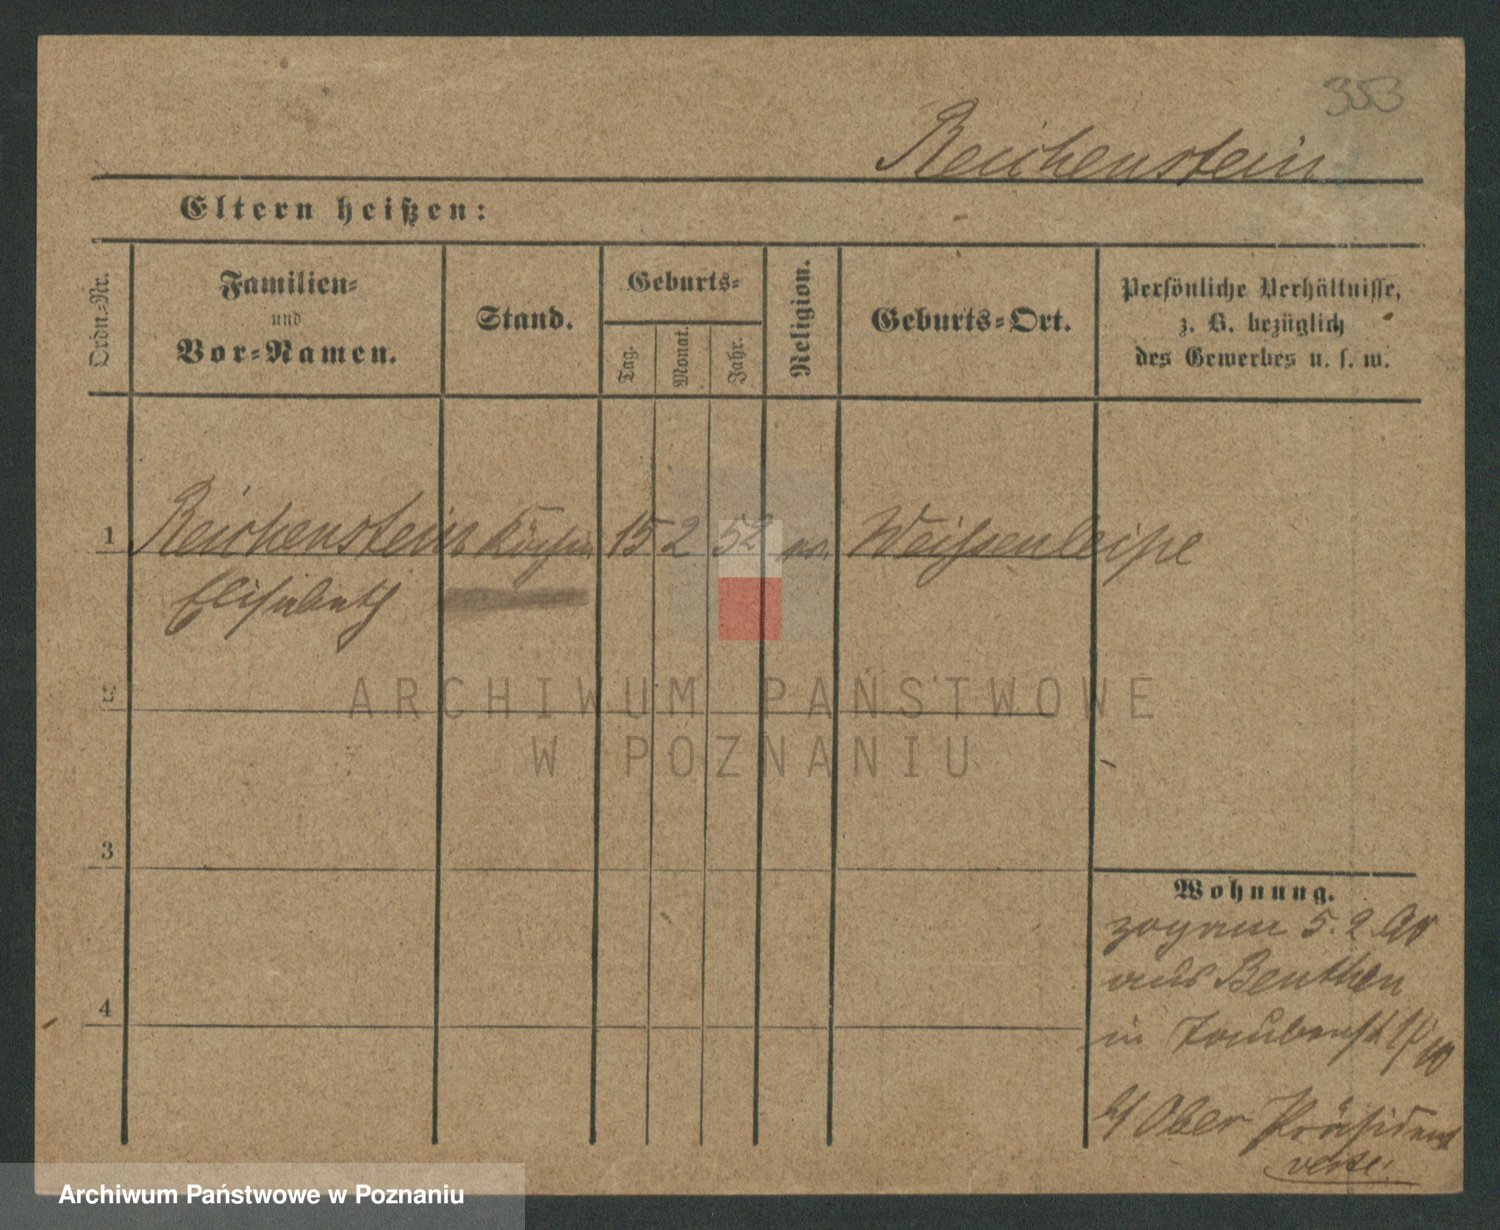 353
Reichenstein
Eltern heißen:
Ordn.-Nr.
Familien-
und
Vor-Namen.
Stand.
Geburts-
Tag.
Monat.
Jahr.
Religion.
Geburts-Ort.
Persönliche Verhältnisse,
z. B. bezüglich
des Gewerbes u. s. w.
1 Reichenstein Köchin 15 2 52 Weissenleipe
Elisabeth
2
3
4
Wohnung.
zog am 5. 2. 90
aus Beuthen
in
Ober Präsident
ARCHIWUM PAŃSTWOWE
W POZNANIU
Archiwum Państwowe w Poznaniu